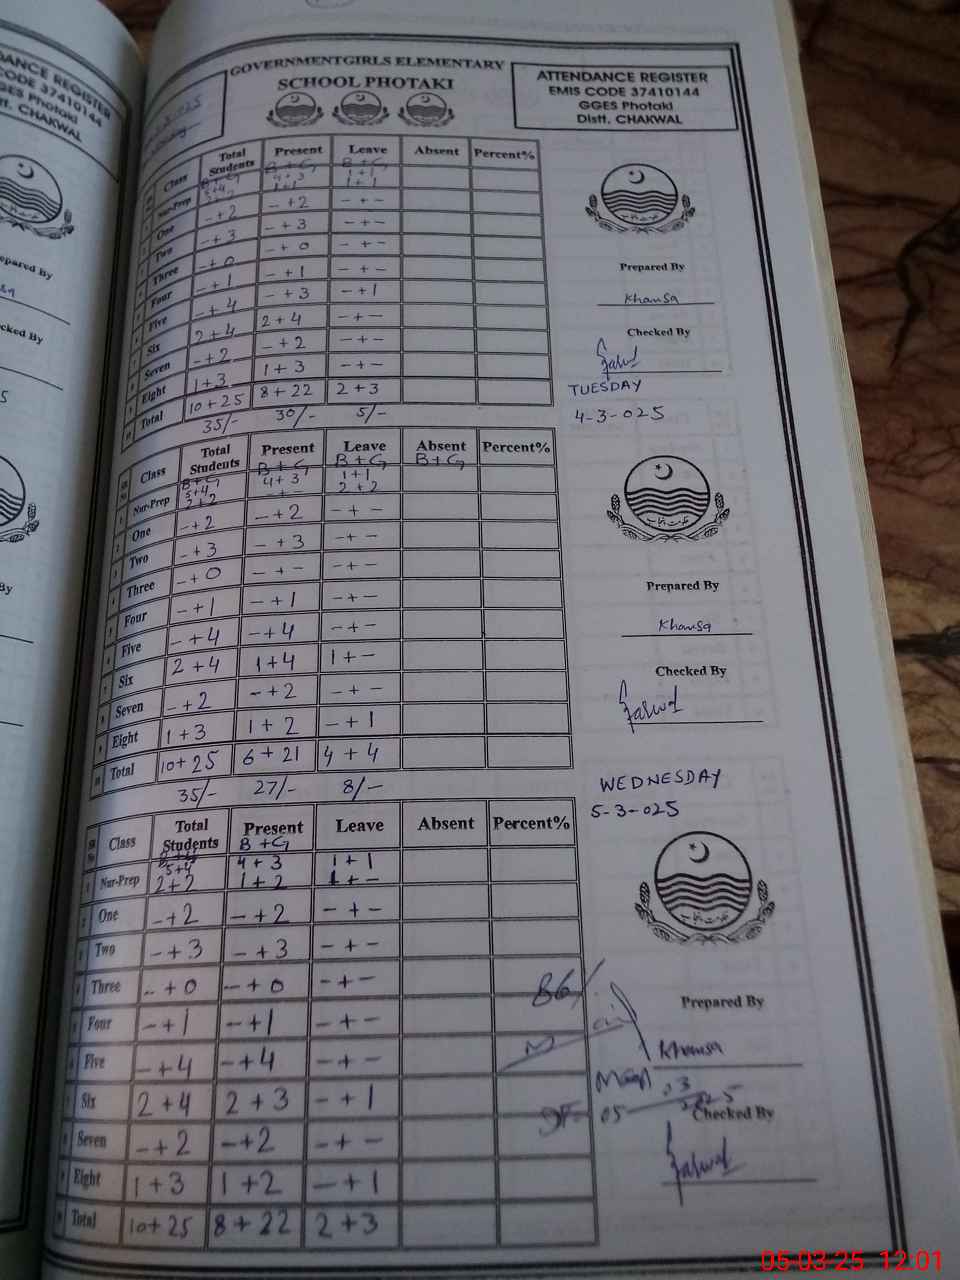 DANCE REGISTER
CODE 37410144
GGES Photaki
tt. CHAKWAL
GOVERNMENTGIRLS ELEMENTARY
SCHOOL PHOTAKI
ATTENDANCE REGISTER
EMIS CODE 37410144
GGES Photaki
Distt. CHAKWAL
Class Total Students Present Leave Absent Percent%
B+G B+G B+G
Nur-Prep 5+4 4+3 1+1
1+1 1+1
One -+2 -+2 -+-
Two -+3 -+3 -+-
Three -+0 -+0 -+-
Four -+1 -+1 -+-
Five -+4 -+3 -+1
Six 2+4 2+4 -+-
Seven -+2 -+2 -+-
Eight 1+3 1+3 -+-
Total 10+25 8+22 2+3
35/- 30/- 5/-
Prepared By
Khansa
Checked By
TUESDAY
4-3-025
Sr No Class Total Students Present Leave Absent Percent%
B+G B+G B+G B+G
1 Nur-Prep 5+4 4+3 1+1
2+2 -+- 2+2
2 One -+2 -+2 -+-
3 Two -+3 -+3 -+-
4 Three -+0 -+- -+-
5 Four -+1 -+1 -+-
6 Five -+4 -+4 -+-
7 Six 2+4 1+4 1+-
8 Seven -+2 -+2 -+-
9 Eight 1+3 1+2 -+1
10 Total 10+25 6+21 4+4
35/- 27/- 8/-
Prepared By
Khansa
Checked By
WEDNESDAY
5-3-025
Sr No Class Total Students Present Leave Absent Percent%
B+G B+G
1 Nur-Prep 5+4 4+3 1+1
2+2 1+2 1+-
2 One -+2 -+2 -+-
3 Two -+3 -+3 -+-
4 Three -+0 -+0 -+-
5 Four -+1 -+1 -+-
6 Five -+4 -+4 -+-
7 Six 2+4 2+3 -+1
8 Seven -+2 -+2 -+-
9 Eight 1+3 1+2 -+1
10 Total 10+25 8+22 2+3
Prepared By
Khansa
Checked By
05-03-25 12:01